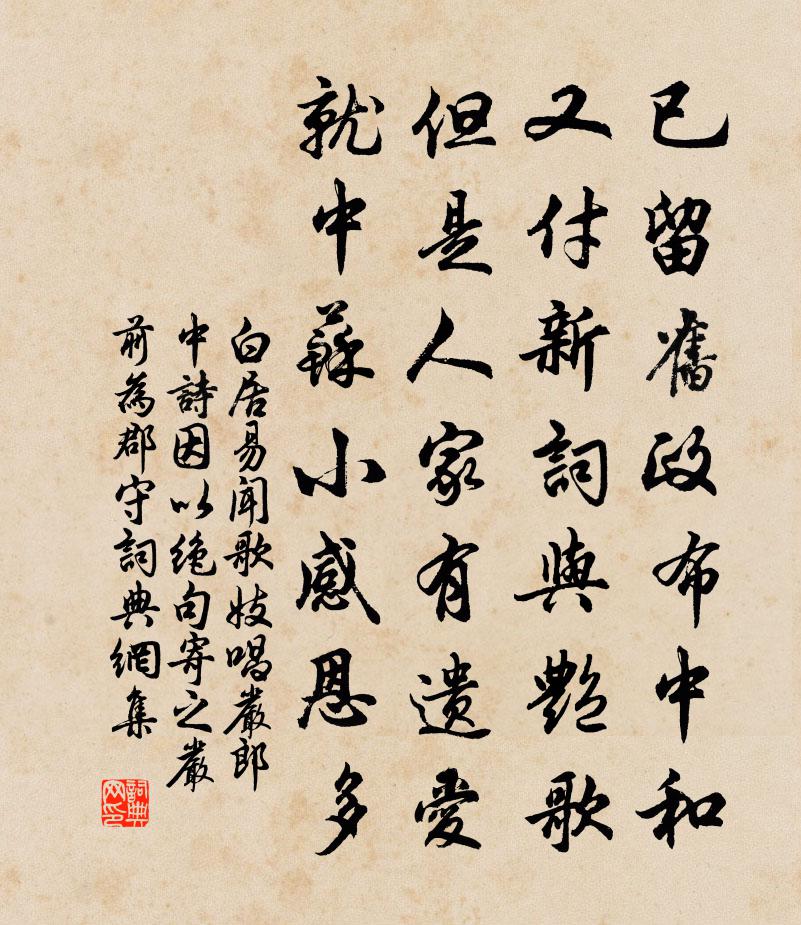 已留舊政布中和
又付新詞與艷歌
但是人家有遺愛
就中蘇小感恩多
白居易聞歌妓唱嚴郎
中詩因以絶句寄之嚴
前為郡守詞典網集
詞典网印